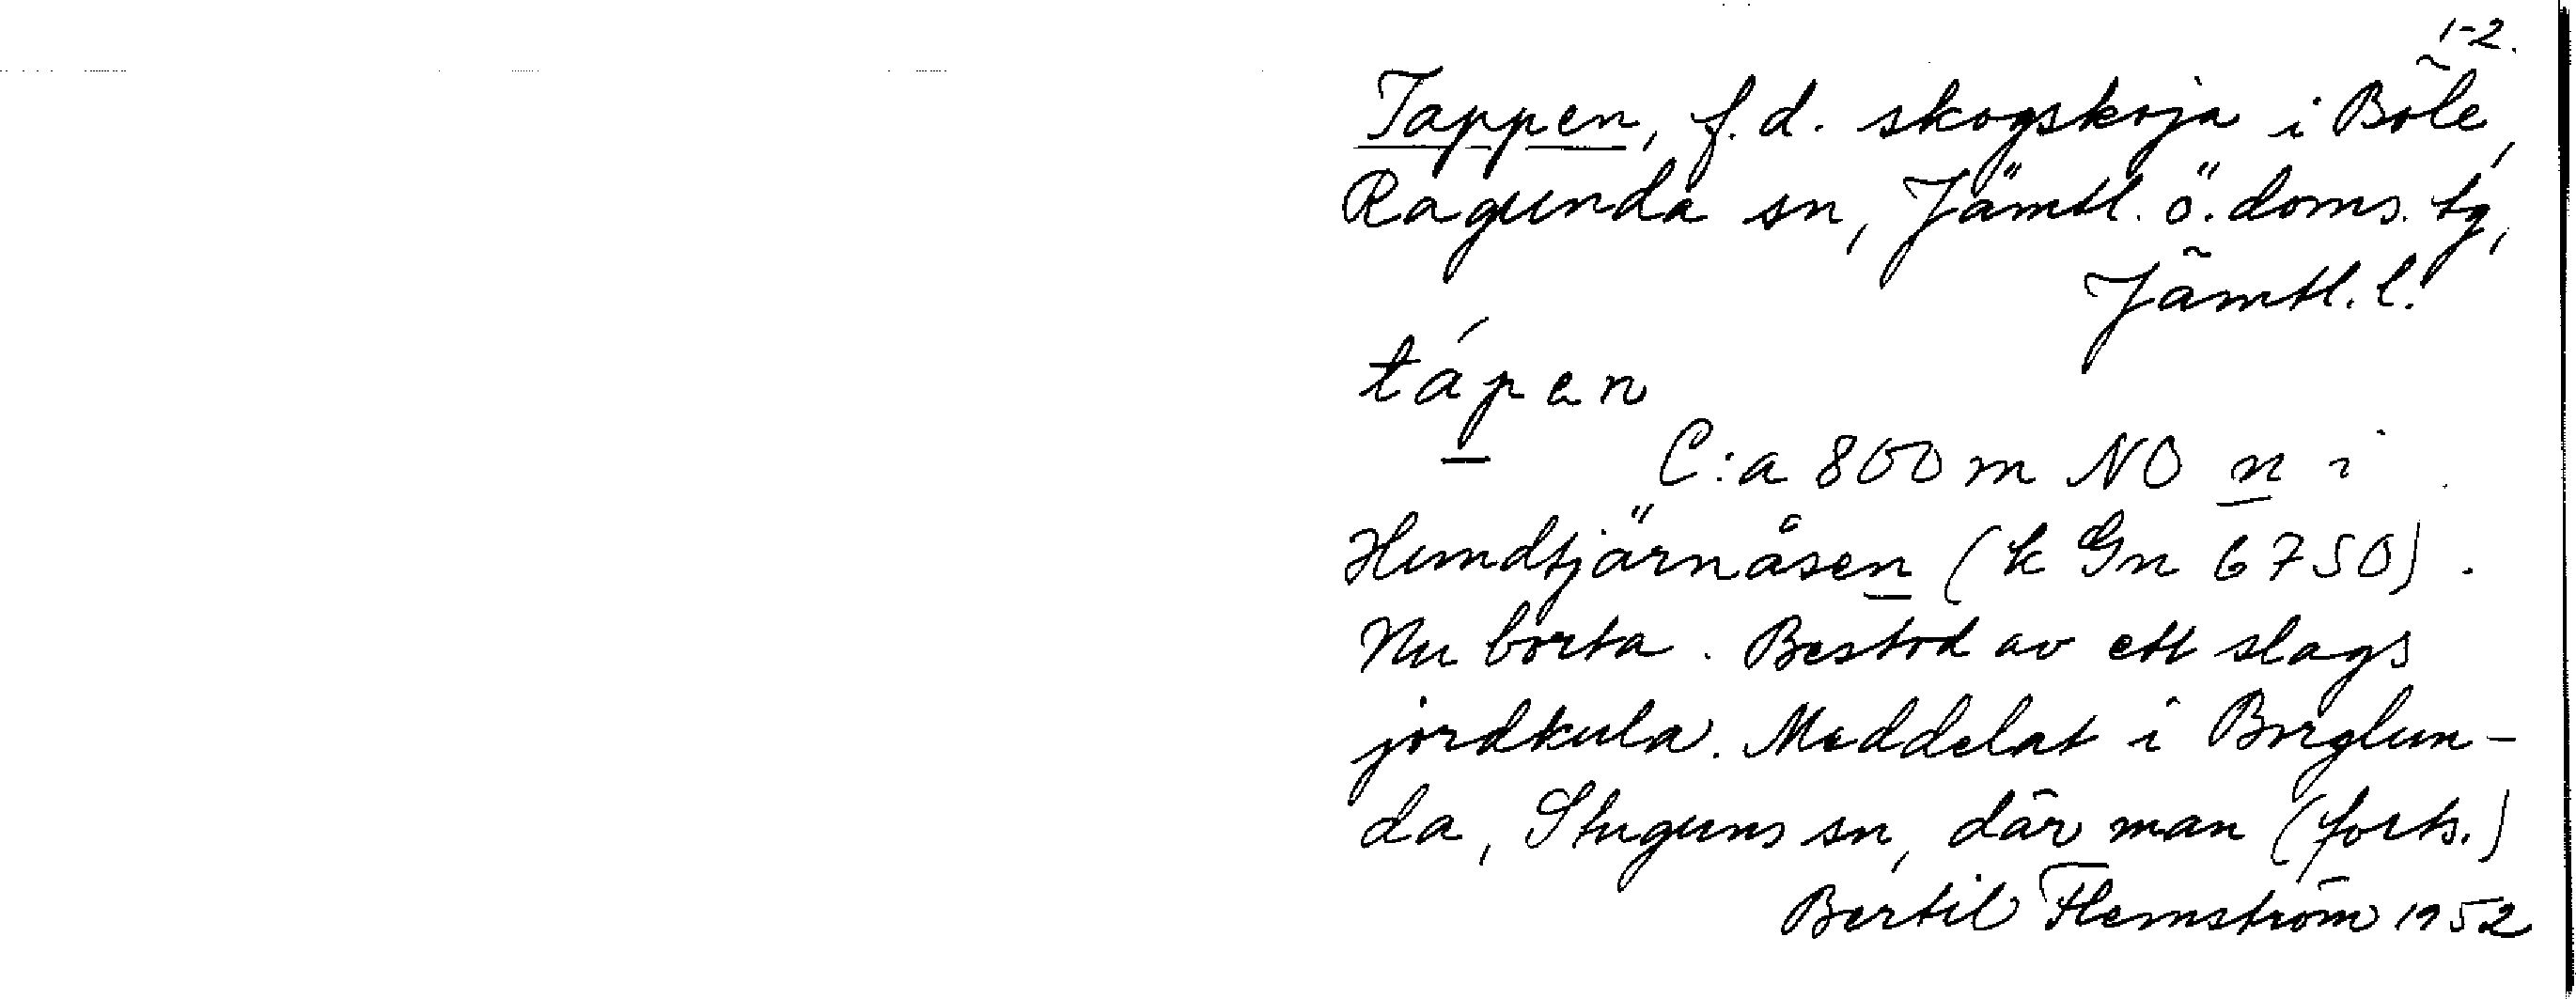 1-2.
Tappen, f.d. skogskoja i Böle,
Ragunda sn, Jämtl. ö. doms. tg,
Jämtl. l.
tápen
C:a 800 m NO n i
Hundtjärnåsen (k Gn 6750).
Nu borta. Bestod av ett slags
jordkula. Meddelat i Borglun-
da, Stuguns sn, där man (forts.)
Bertil Flemström 1952